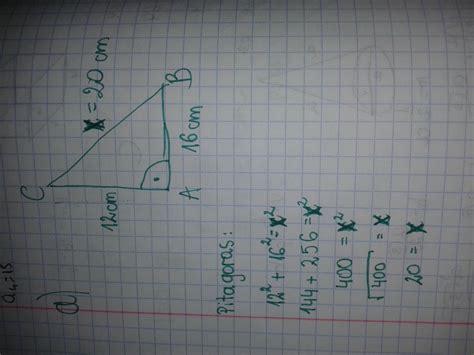 a₄=15
d)
C
12cm
x = 20cm
A
16cm
B
Pitagoras:
12² + 16² = x²
144 + 256 = x²
400 = x²
√400 = x
20 = x